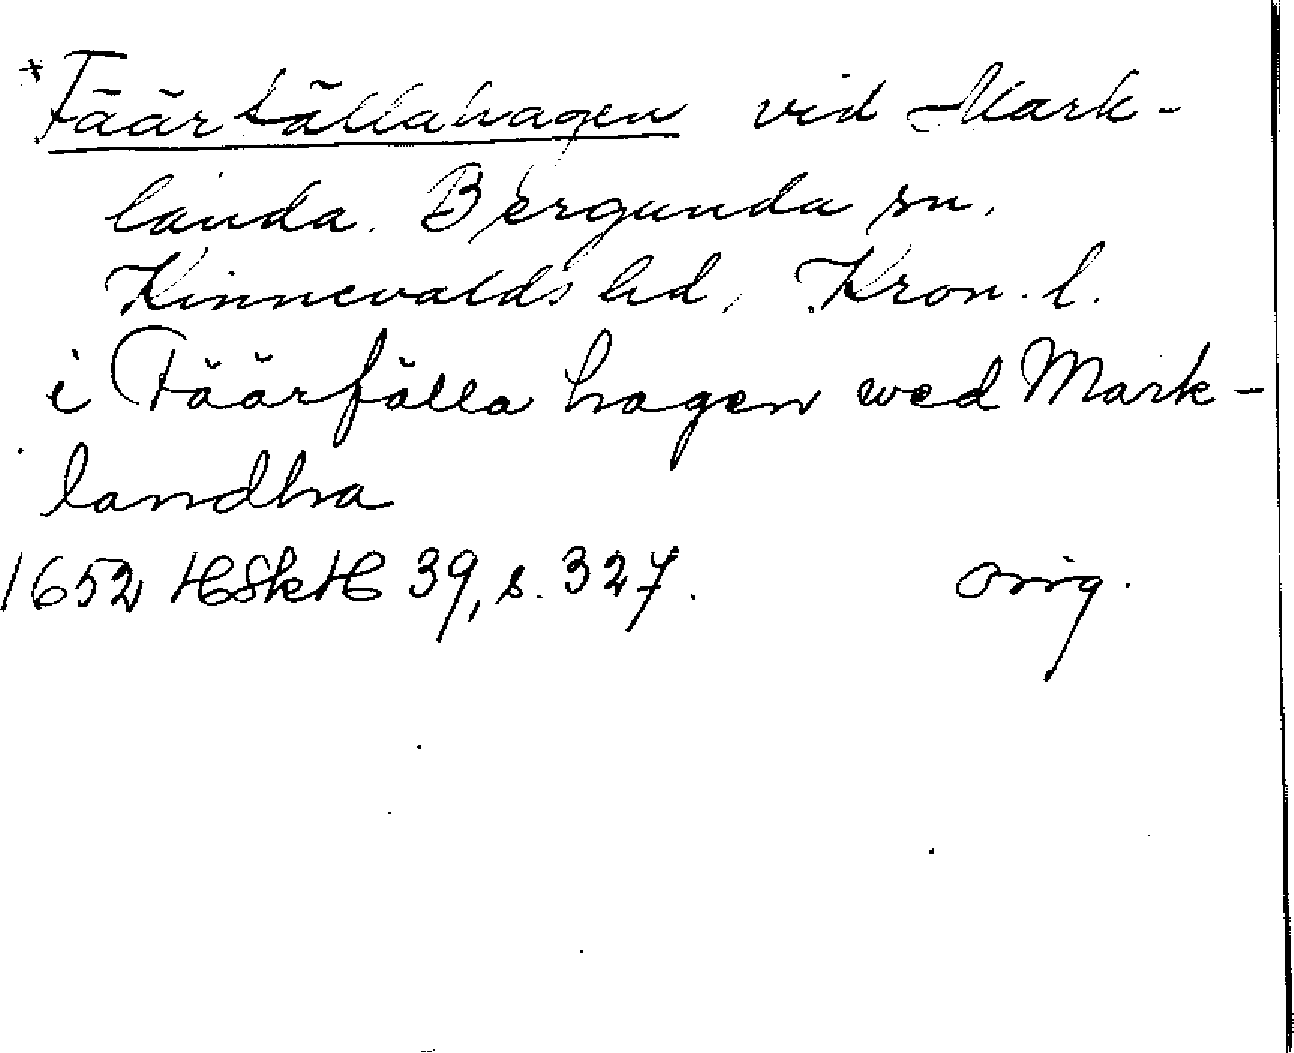 +Fäärfällahagen vid Mark-
landa. Bergunda sn,
Kinnevalds hd, Kron. l.
i Fäärfälla hagen wed Mark-
landha
1652 HSkH 39, s. 327. orig.